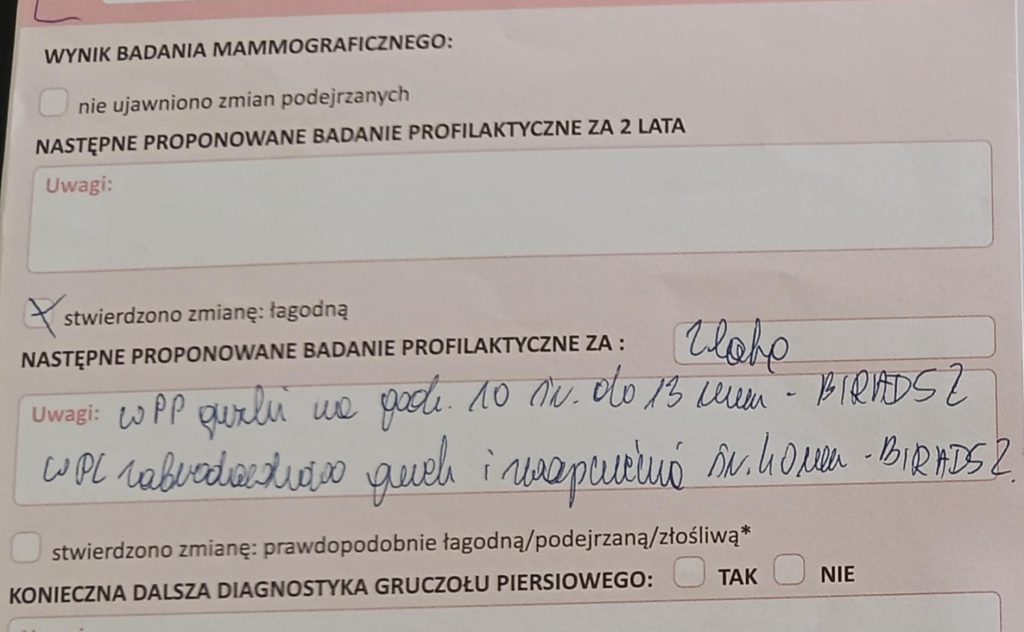 WYNIK BADANIA MAMMOGRAFICZNEGO:
nie ujawniono zmian podejrzanych
NASTĘPNE PROPONOWANE BADANIE PROFILAKTYCZNE ZA 2 LATA
Uwagi:
stwierdzono zmianę: łagodną
NASTĘPNE PROPONOWANE BADANIE PROFILAKTYCZNE ZA :
Uwagi: w PP guzki na godz. 10 śr. do 13 mm - BIRADS 2
w PL guzek i śr. - BIRADS 2.
stwierdzono zmianę: prawdopodobnie łagodną/podejrzaną/złośliwą*
KONIECZNA DALSZA DIAGNOSTYKA GRUCZOŁU PIERSIOWEGO: TAK NIE